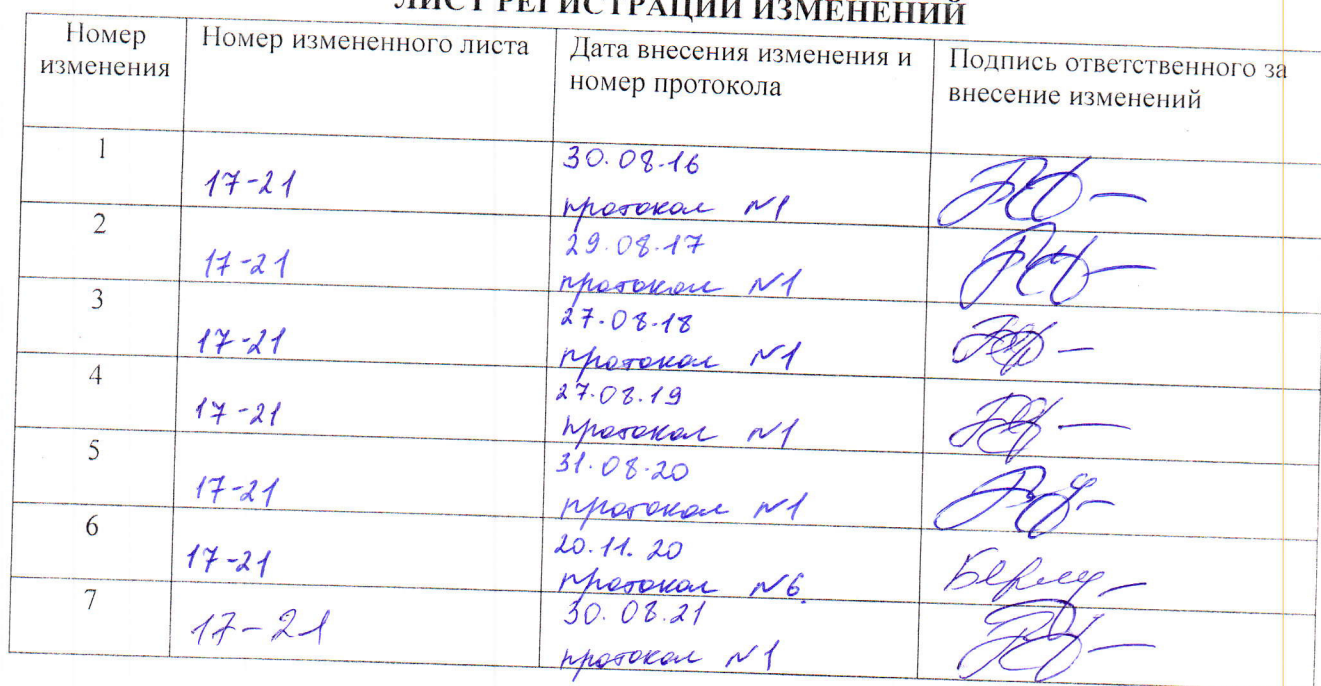 ЛИСТ РЕГИСТРАЦИИ ИЗМЕНЕНИЙ
Номер изменения
Номер измененного листа
Дата внесения изменения и номер протокола
Подпись ответственного за внесение изменений
1
17-21
30.08.16
протокол №1
2
17-21
29.08.17
протокол №1
3
17-21
27.08.18
протокол №1
4
17-21
27.08.19
протокол №1
5
17-21
31.08.20
протокол №1
6
17-21
20.11.20
протокол №6
7
17-21
30.08.21
протокол №1